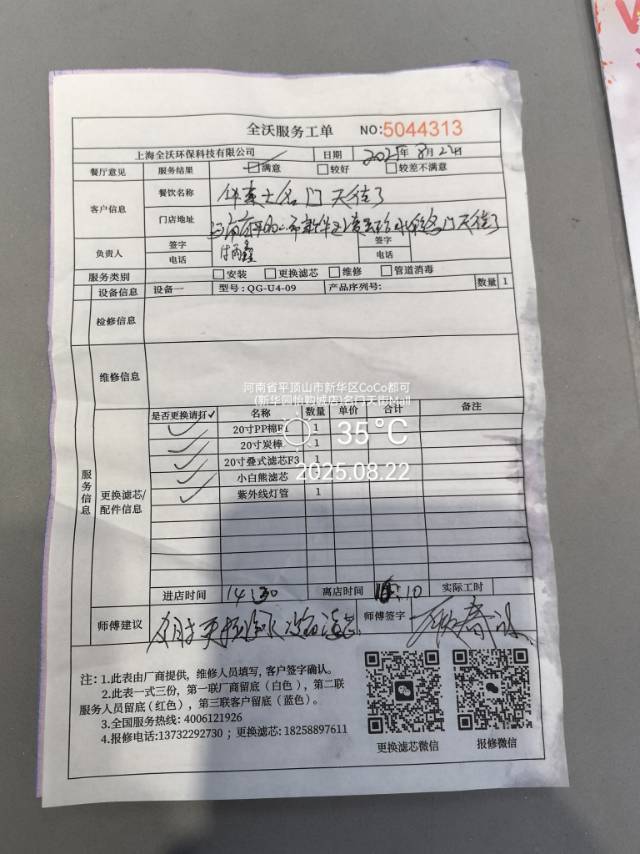 全沃服务工单 NO:5044313
上海全沃环保科技有限公司 日期 2025年8月22日
餐厅意见 服务结果 满意 较好 较差不满意
客户信息 餐饮名称
名门天街
门店地址
负责人 签字 签字
电话 电话
服务类别 安装 更换滤芯 维修 管道消毒
设备信息 设备一 型号:QG-U4-09 产品序列号: 数量 1
检修信息
维修信息
河南省平顶山市新华区CoCo都可
(新华园怡购城店)名门天街Mall
35℃
2025.08.22
服务信息
更换滤芯/配件信息
是否更换请打✓ 名称 数量 单价 合计 备注
✓ 20寸PP棉F1 1
✓ 20寸炭棒 1
✓ 20寸叠式滤芯F3 1
✓ 小白熊滤芯 1
✓ 紫外线灯管 1
进店时间 14:30 离店时间 :10 实际工时
师傅建议 师傅签字
注: 1.此表由厂商提供，维修人员填写, 客户签字确认。
2.此表一式三份，第一联厂商留底(白色)，第二联
服务人员留底(红色)，第三联客户留底（蓝色）。
3.全国服务热线: 4006121926
4.报修电话:13732292730 ; 更换滤芯: 18258897611
更换滤芯微信 报修微信